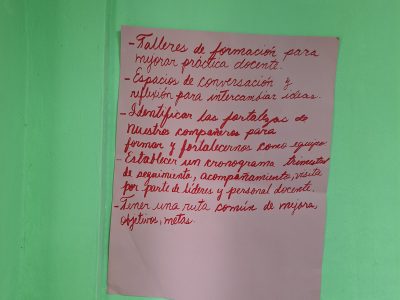 - Talleres de formación para
mejorar práctica docente.
- Espacios de conversación y
reflexión para intercambiar ideas.
- Identificar las fortalezas de
nuestros compañeros para
formar y fortalecernos como equipo
- Establecer un cronograma trimestral
de seguimiento, acompañamiento, visita
por parte de líderes y personal docente.
- Tener una ruta común de mejora,
objetivos, metas.